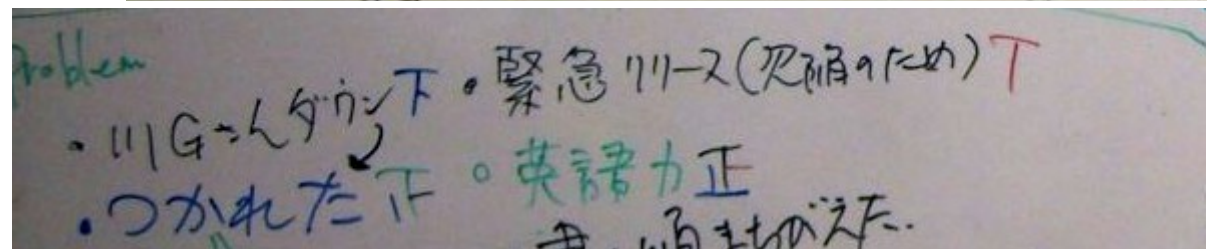 Problem
・川Gさんダウン下 ・緊急リリース(欠陥のため)丅
・つかれた正 ○英語力正
まちがえた.